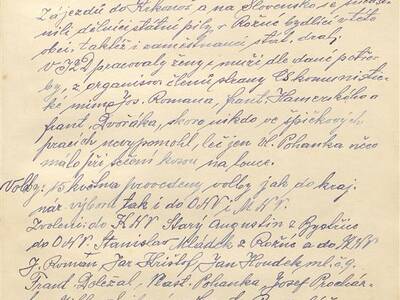 Zájezdů do Krkonoš a na Slovensko se
nili dělníci státní pily, v Rožné bydlící v této
obci, taktéž i zaměstnanci stát. drah,
V JZD pracovaly ženy i muži dle dané potře-
by, z organisov. členů strany ČS komunistic-
ké mimo Jos. Romana, frant. Hamerského a
frant. Dvořáka, skoro nikdo ve špičkových
pracích nevypomohl, leč jen Vl. Pohanka něco
málo při sečení kosou na louce.
Volby: 15 května provedeny volby jak do kraj.
nár. výborů tak i do ONV i MNV.
Zvoleni: do KNV Starý Augustin z Bystřice
do ONV. Stanislav Mládek z Rožné a do MNV
J. Román, Jar Kristof, Jan Houdek ml. č. 9.
Frant Doležal, Vlast. Pohanka, Josef Prochár-